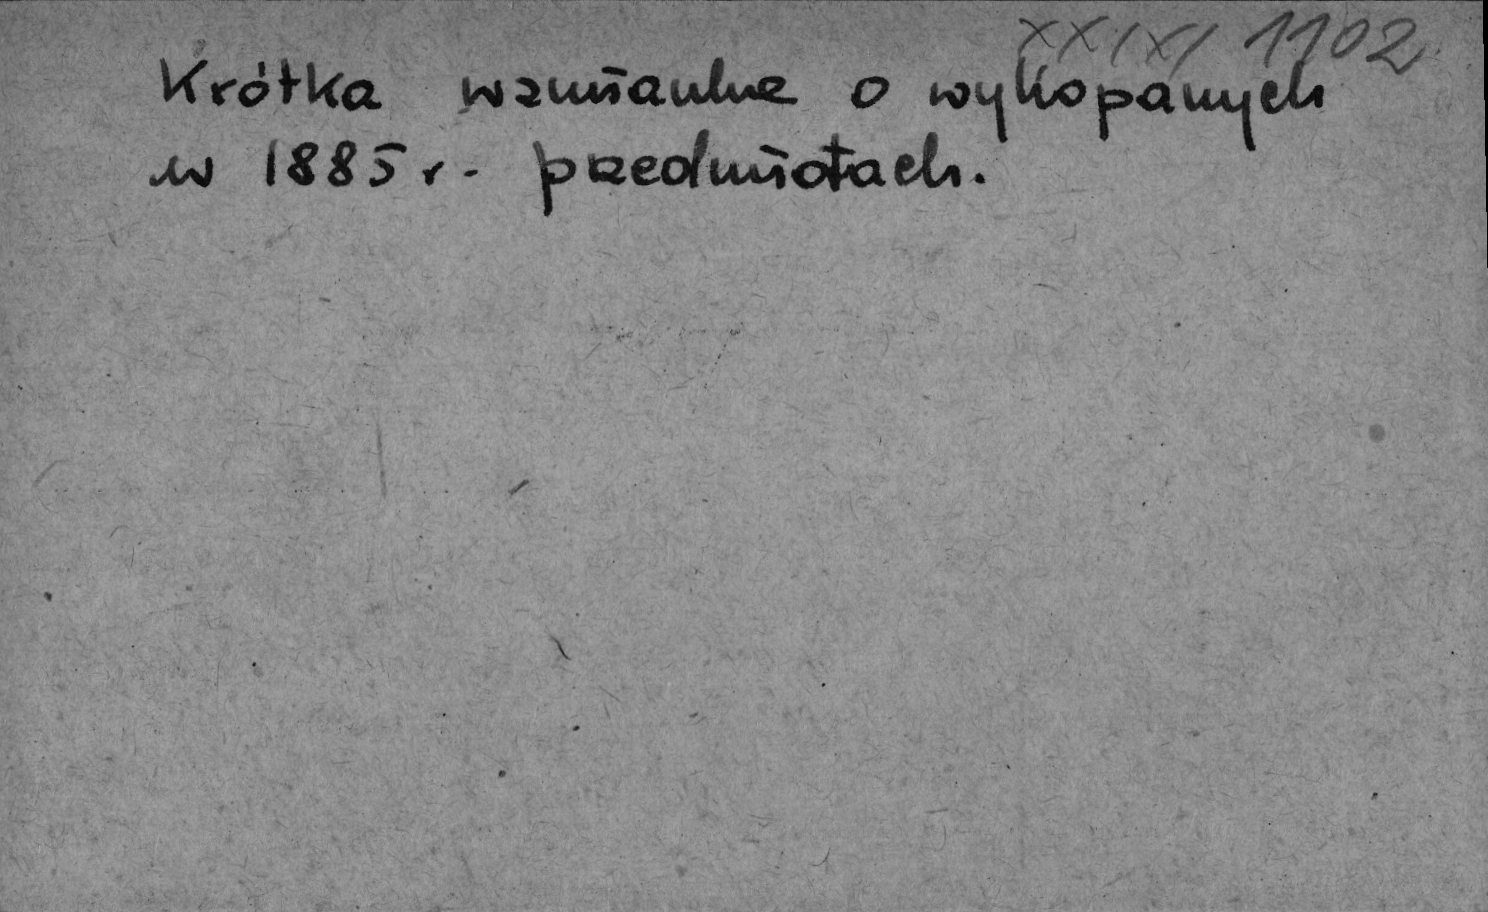 XXIX/1102
Krótka wzmianka o wykopanych
w 1885 r. przedmiotach.